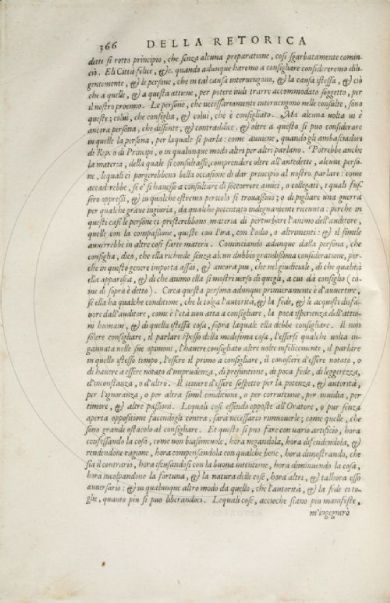 366 DELLA RETORICA
detti si rotto principio, che senza alcuna preparatione, così sgarbatamente comin
ciò. Eli Città felice, &c. quando adunque haremo a consigliare considereremo dili
gentemente, & le persone, che in tal causa intervengono, & la causa istessa, & ciò
che a quelle, & a questa attiene, per potere indi trarre accommodato soggetto, per
il nostro proemo. Le persone, che necessariamente intervengono nelle consulte, sono
queste; colui, che consiglia, & colui, che è consigliato. Ma alcuna volta vi è
ancora persona, che dissente, & contraddice, & oltre a questo si può considerare
in quelle la persona, per laquale si parla: come avviene, quando gli ambasciadori
di Rep. o di Principi, o in qualunque modo altri per altri parlano. Potrebbe anche
la materia, della quale si consultasse, comprendere oltre all'antedette, alcune perso
ne, lequali ci porgerebbono bella occasione di dar principio al nostro parlare: come
accadrebbe, se e' si havesse a consultare di soccorrere amici, o collegati, i quali fus
sero oppressi, & in qualche estremo pericolo si trovassino; o di pigliare una guerra
per qualche grave ingiuria, da qualche potentato indegnamente ricevuta: perche in
questi casi le persone ci presterebbono materia di perturbare l'animo dell'auditore,
quelle con la compassione, queste con l'ira, con l'odio, o altrimenti: & il simile
avverrebbe in altre così fatte materie. Cominciando adunque dalla persona, che
consiglia, dico, che ella richiede senza alcun dubbio grandissima consideratione, per-
che in questo genere importa assai, & ancora più, che nel giudiciale, di che qualità
ella apparisca, & di che animo ella si mostri verso di quegli, a cui dà consiglio (co
me di sopra è detto). Circa questa persona adunque primieramente è d'avvertire,
se ella ha qualche conditione, che le tolga l'autorità, & la fede, & le acquisti disfa-
vore dall'auditore, come è l'età non atta a consigliare, la poca isperienza dell'attio-
ni humane, & di quella istessa cosa, sopra laquale ella debbe consigliare. Il non
solere consigliare, il parlare spesso della medesima cosa, l'essersi qualche volta in-
gannata nelle sue opinioni, l'havere consigliato altre volte infelicemente, il parlare
in quello stesso tempo, l'essere il primo a consigliare, il conoscere d'essere notato, o
di havere a essere notato d'imprudenza, di presuntione, di poca fede, di leggerezza,
d'incostanza, o d'altro. Il temere d'essere sospetto per la potenza, & autorità,
per l'ignoranza, o per altra simil conditione, o per corruttione, per invidia, per
timore, & altre passioni. Lequali cose essendo opposte all'Oratore, o pur senza
aperta oppositione facendogli contra, sarà necessario rimuoverle; come quelle, che
sono grande ostacolo al consigliare. Et questo si può fare con vario artificio, hora
confessando la cosa, come non biasimevole, hora negandola, hora difendendola, &
rendendone ragione, hora compensandola con qualche bene, hora dimostrando, che
sia il contrario, hora scusandosi con la buona intentione, hora diminuendo la cosa,
hora incolpandone la fortuna, & la natura delle cose, hora altre, & talhora esso
avversario: & in qualunque altro modo da quello, che l'autorità, & la fede ci to-
glie, quanto più si può liberandoci. Lequali cose, accioche siano più manifeste,
m'ingegnerò